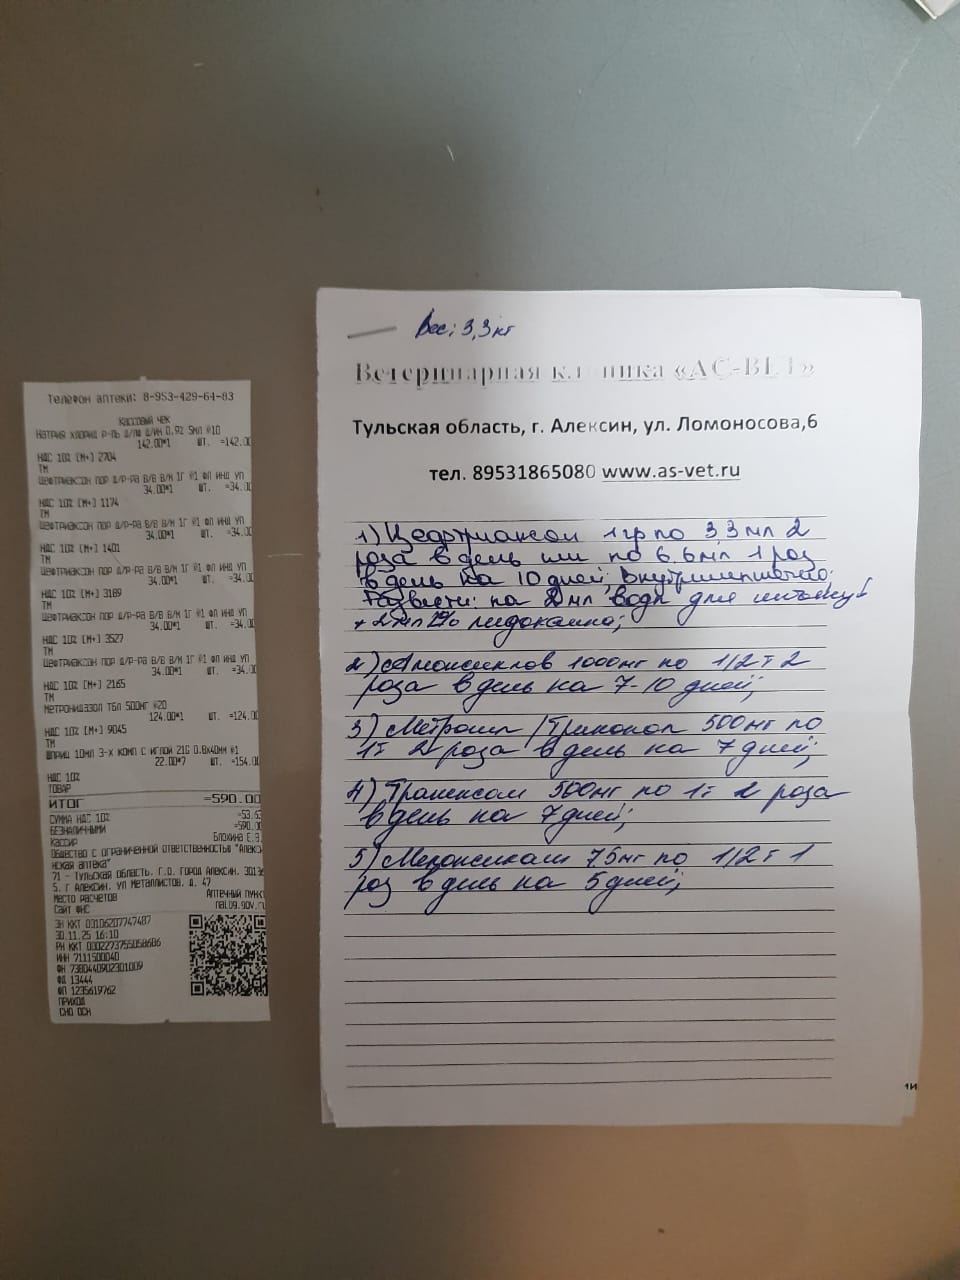 Телефон аптеки: 8-953-429-64-83
Кассовый чек
Натрия хлорид р-ль д/лф д/ин 0,9% 5мл №10
142.00*1 шт. =142.00
НДС 10% [М+] 2704
ТМ
Цефтриаксон пор д/р-ра в/в в/м 1г №1 фл инд уп
34.00*1 шт. =34.00
НДС 10% [М+] 1174
ТМ
Цефтриаксон пор д/р-ра в/в в/м 1г №1 фл инд уп
34.00*1 шт. =34.00
НДС 10% [М+] 1401
ТМ
Цефтриаксон пор д/р-ра в/в в/м 1г №1 фл инд уп
34.00*1 шт. =34.00
НДС 10% [М+] 3189
ТМ
Цефтриаксон пор д/р-ра в/в в/м 1г №1 фл инд уп
34.00*1 шт. =34.00
НДС 10% [М+] 3527
ТМ
Цефтриаксон пор д/р-ра в/в в/м 1г №1 фл инд уп
34.00*1 шт. =34.00
НДС 10% [М+] 2165
ТМ
Метронидазол тбл 500мг №20
124.00*1 шт. =124.00
НДС 10% [М+] 9045
ТМ
Шприц 10мл 3-х комп с иглой 21G 0.8х40мм №1
22.00*7 шт. =154.00
НДС 10%
ТОВАР
ИТОГ =590.00
СУММА НДС 10% =53.6
БЕЗНАЛИЧНЫМИ =590.0
Кассир Блохина Е.В.
Общество с ограниченной ответственностью "Алекс
инская аптека"
71 - Тульская область, Г.О. город Алексин, 3013
5, г Алексин, ул Металлистов, д. 47
Место расчетов Аптечный пунк
Сайт ФНС nalog.gov.r
ЗН ККТ 00106207747487
30.11.25 16:10
РН ККТ 0002273755058606
ИНН 7111500040
ФН 7380440902301009
ФД 13444
ФП 1235619762
ПРИХОД
СНО ОСН
Вес: 3,3кг
Ветеринарная клиника «АС-ВЕТ»
Тульская область, г. Алексин, ул. Ломоносова,6
тел. 89531865080 www.as-vet.ru
1) Цефтриаксон 1гр по 3,3мл 2
раза в день или по 6,6мл 1 раз
в день на 10 дней; внутримышечно;
развести: на 2мл воды для инъекций
+ 2мл 2% лидокаина;
2) Амоксиклав 1000мг по 1/2т 2
раза в день на 7-10 дней;
3) Метрогил/Трихопол 500мг по
1т 2 раза в день на 7 дней;
4) Транексам 500мг по 1т 2 раза
в день на 7 дней;
5) Мелоксикам 7.5мг по 1/2т 1
раз в день на 5 дней;